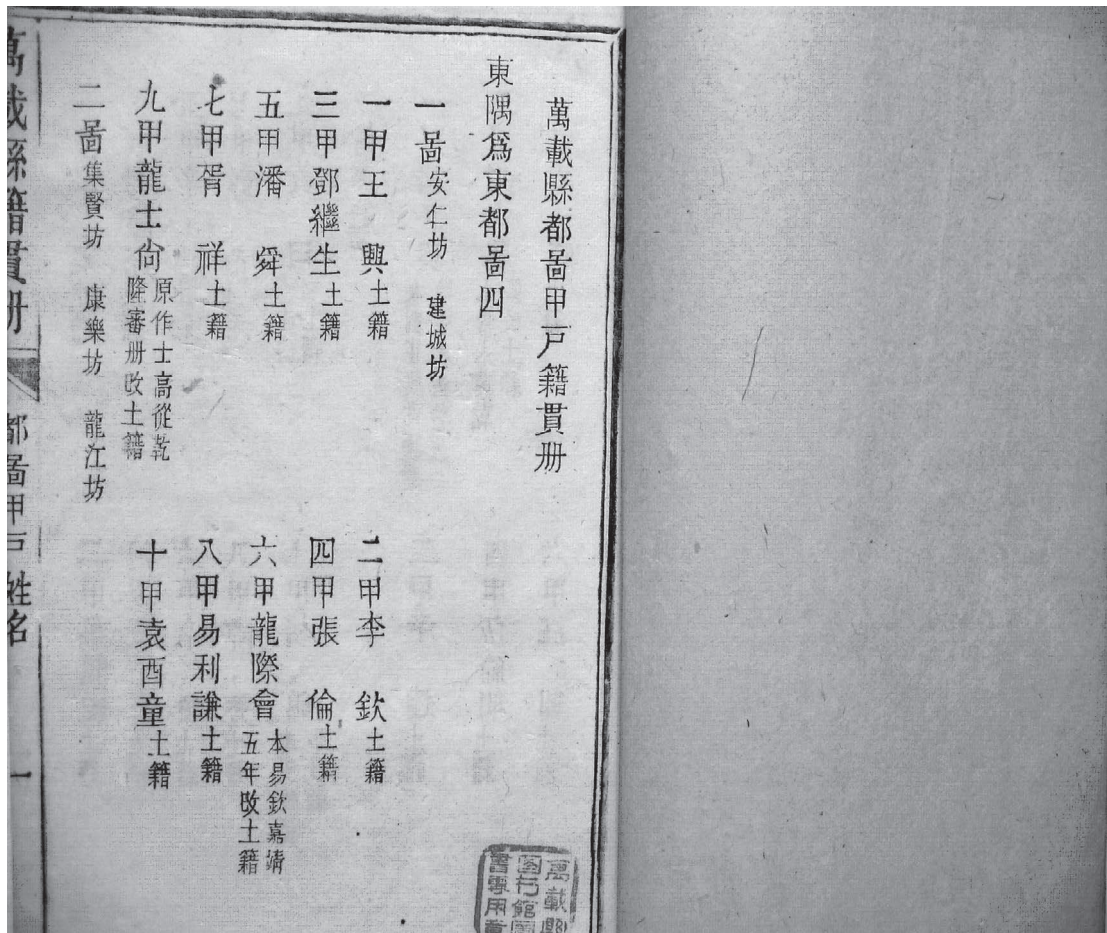 萬載縣都啚甲戸籍貫册
東隅爲東都啚四
一啚安仁坊 建城坊
一甲王 興土籍 二甲李 欽土籍
三甲鄧繼生土籍 四甲張 倫土籍
五甲潘 舜土籍 六甲龍際會本易欽嘉靖五年改土籍
七甲胥 祥土籍 八甲易利謙土籍
九甲龍士尙原作士高從乾隆審册改土籍 十甲袁酉童土籍
二啚集賢坊 康樂坊 龍江坊
萬載縣籍貫册 都啚甲戸姓名 一
萬載縣
圖書館圖
書專用章